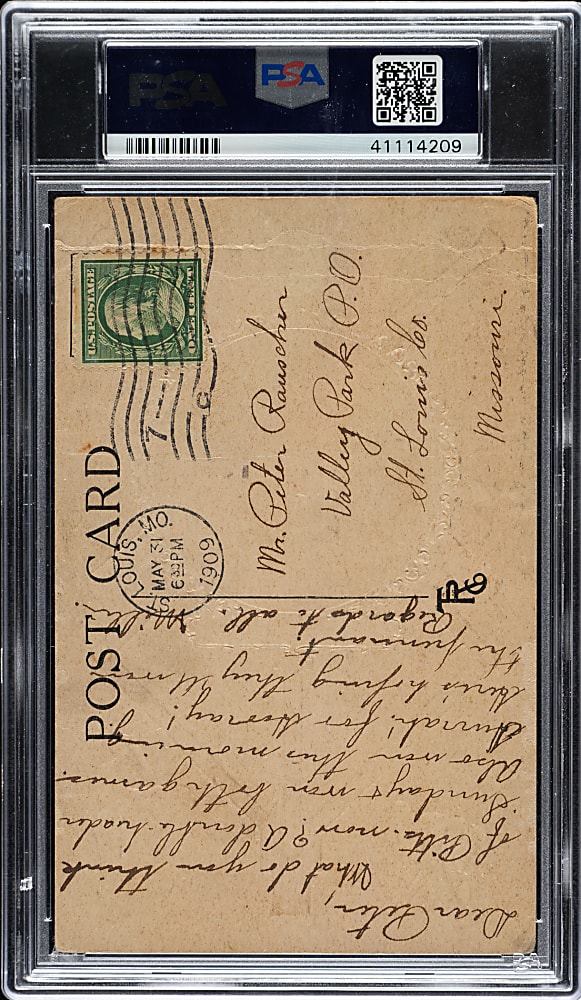 PSA
PSA
41114209
U.S. POSTAGE
ONE CENT
7
C
POST CARD
ST. LOUIS, MO.
MAY 31
630 PM
1909
Mr. Peter Rauscher
Valley Park P.O.
St. Louis Co.
Missouri.
Dear Peter,
What do you think
of Pitts. now? A double header
Sunday & won both games.
Also won this morning
Hurrah! for Hooray!
Here's hoping they'll win
the pennant.
Regards to all.